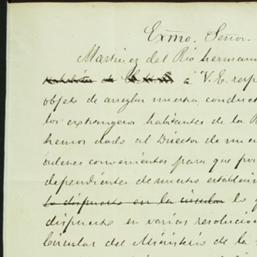 Exmo. Señor.
Martinez del Rio herman
á V. E. resp
objeto de arreglar nuestra conduct
los extrangeros habitantes de la R
hemos dado al Director de nu
órdenes convenientes para que pro
dependientes de nuestro establec
lo dispuesto en la circular lo
dispuesto en varias resolucio
Circular del Ministerio de la